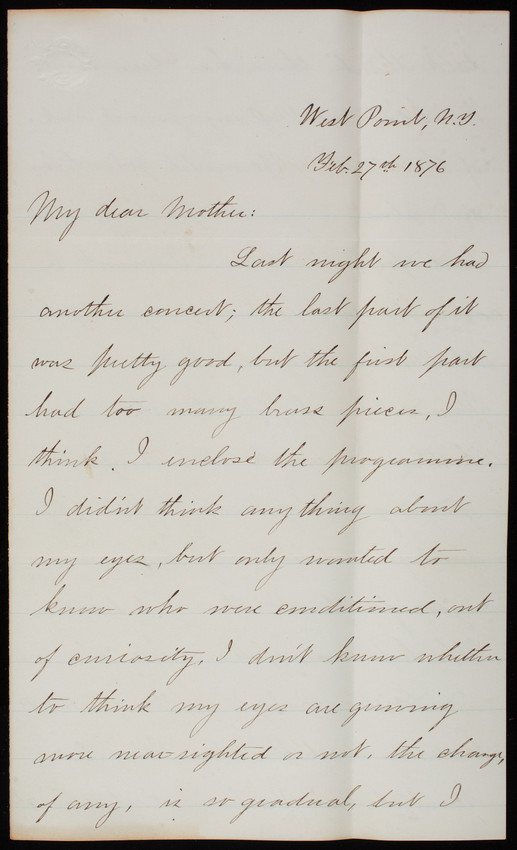 West Point, N.Y.
Feb. 27th 1876
My dear Mother:
Last night we had
another concert; the last part of it
was pretty good, but the first part
had too many brass pieces, I
think. I enclose the programme.
I did'nt think anything about
my eyes, but only wanted to
know who were conditioned, out
of curiosity. I don't know whether
to think my eyes are growing
more near-sighted or not, the change,
if any, is so gradual, but I